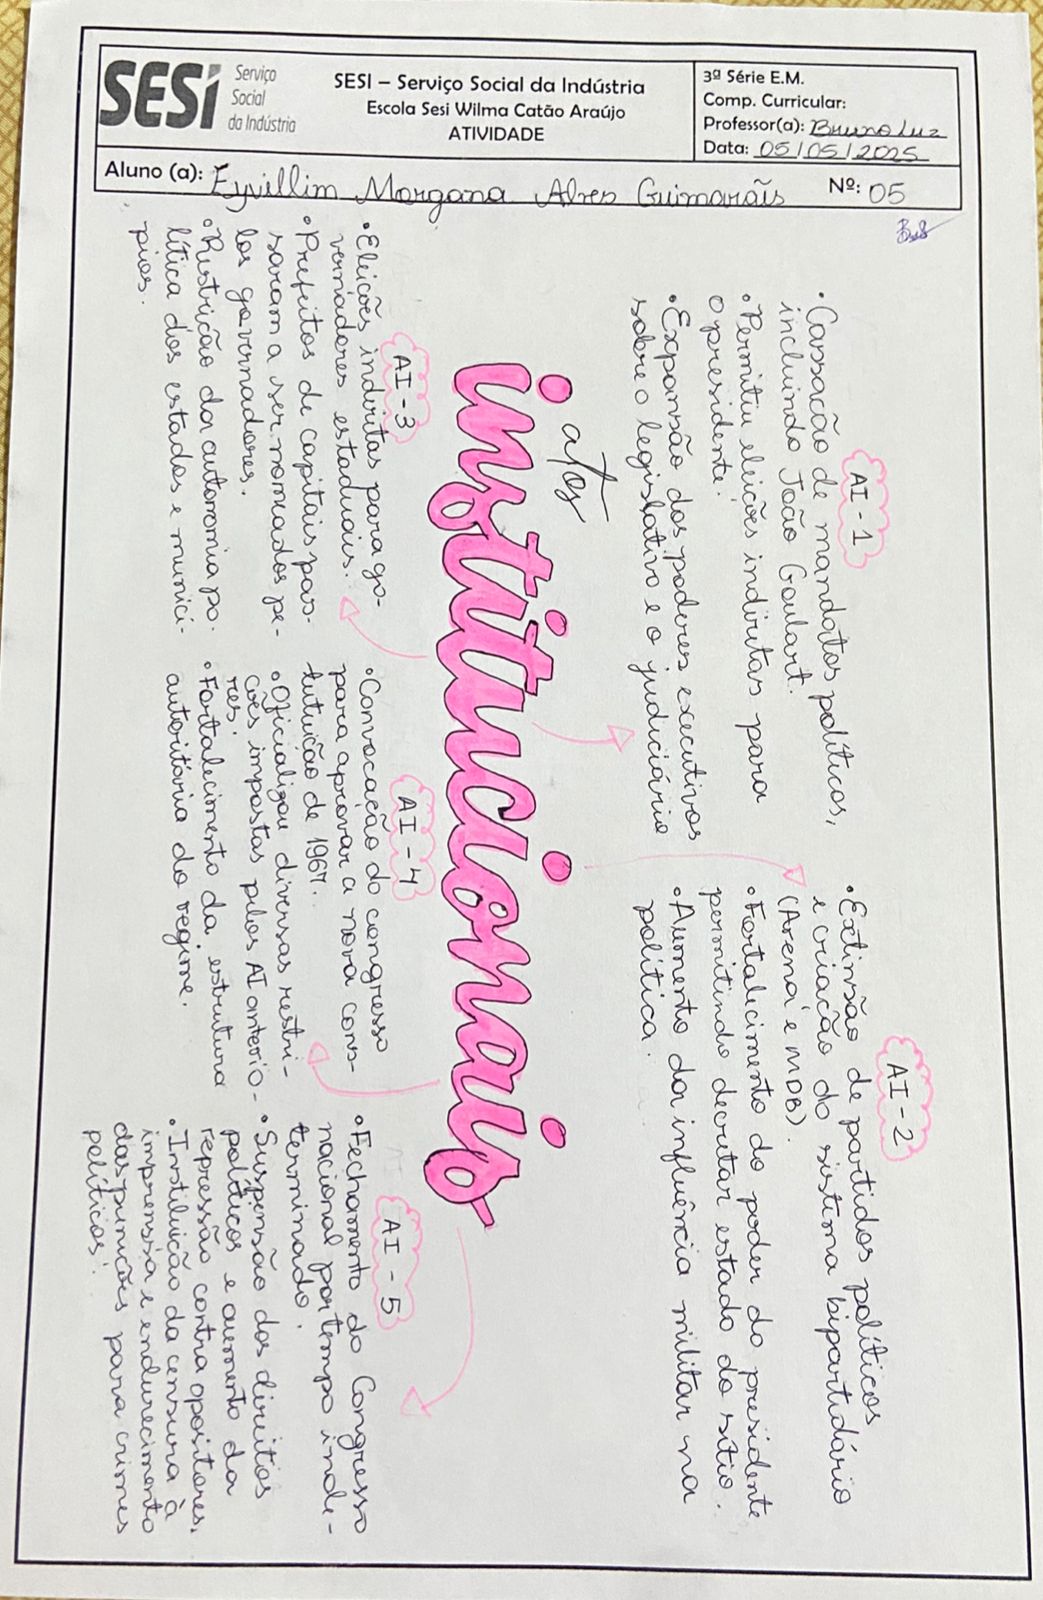 SESI
Serviço
Social
da Indústria
SESI – Serviço Social da Indústria
Escola Sesi Wilma Catão Araújo
ATIVIDADE
3ª Série E.M.
Comp. Curricular:
Professor(a): Bruno Luz
Data: 05/05/2025
Aluno (a): Eyvillim Morgana Alves Guimarães Nº: 05
atos
institucionais
AI-1
• Cassação de mandatos políticos,
incluindo João Goulart.
• Permitiu eleições indiretas para
o presidente.
• Expansão dos poderes executivos
sobre o legislativo e o judiciário
AI-2
• Extinsão de partidos políticos
e criação do sistema bipartidário
(Arena e MDB).
• Fortalecimento do poder do presidente
permitindo decretar estado do sítio.
• Aumento da influência militar na
política.
AI-3
• Eleições indiretas para go-
vernadores estaduais.
• Prefeitos de capitais pas-
saram a ser nomeados pe-
los governadores.
• Restrição da autonomia po-
lítica dos estados e municí-
pios.
AI-4
• Convocação do congresso
para aprovar a nova cons-
tituição de 1967.
• Oficializou diversas restri-
ções impostas pelos AI anterio-
res.
• Fortalecimento da estrutura
autoritária do regime.
AI-5
• Fechamento do Congresso
nacional por tempo inde-
terminado.
• Suspensão dos direitos
políticos e aumento da
repressão contra opositores.
• Instituição da censura à
imprensa e endurecimento
das punições para crimes
políticos.